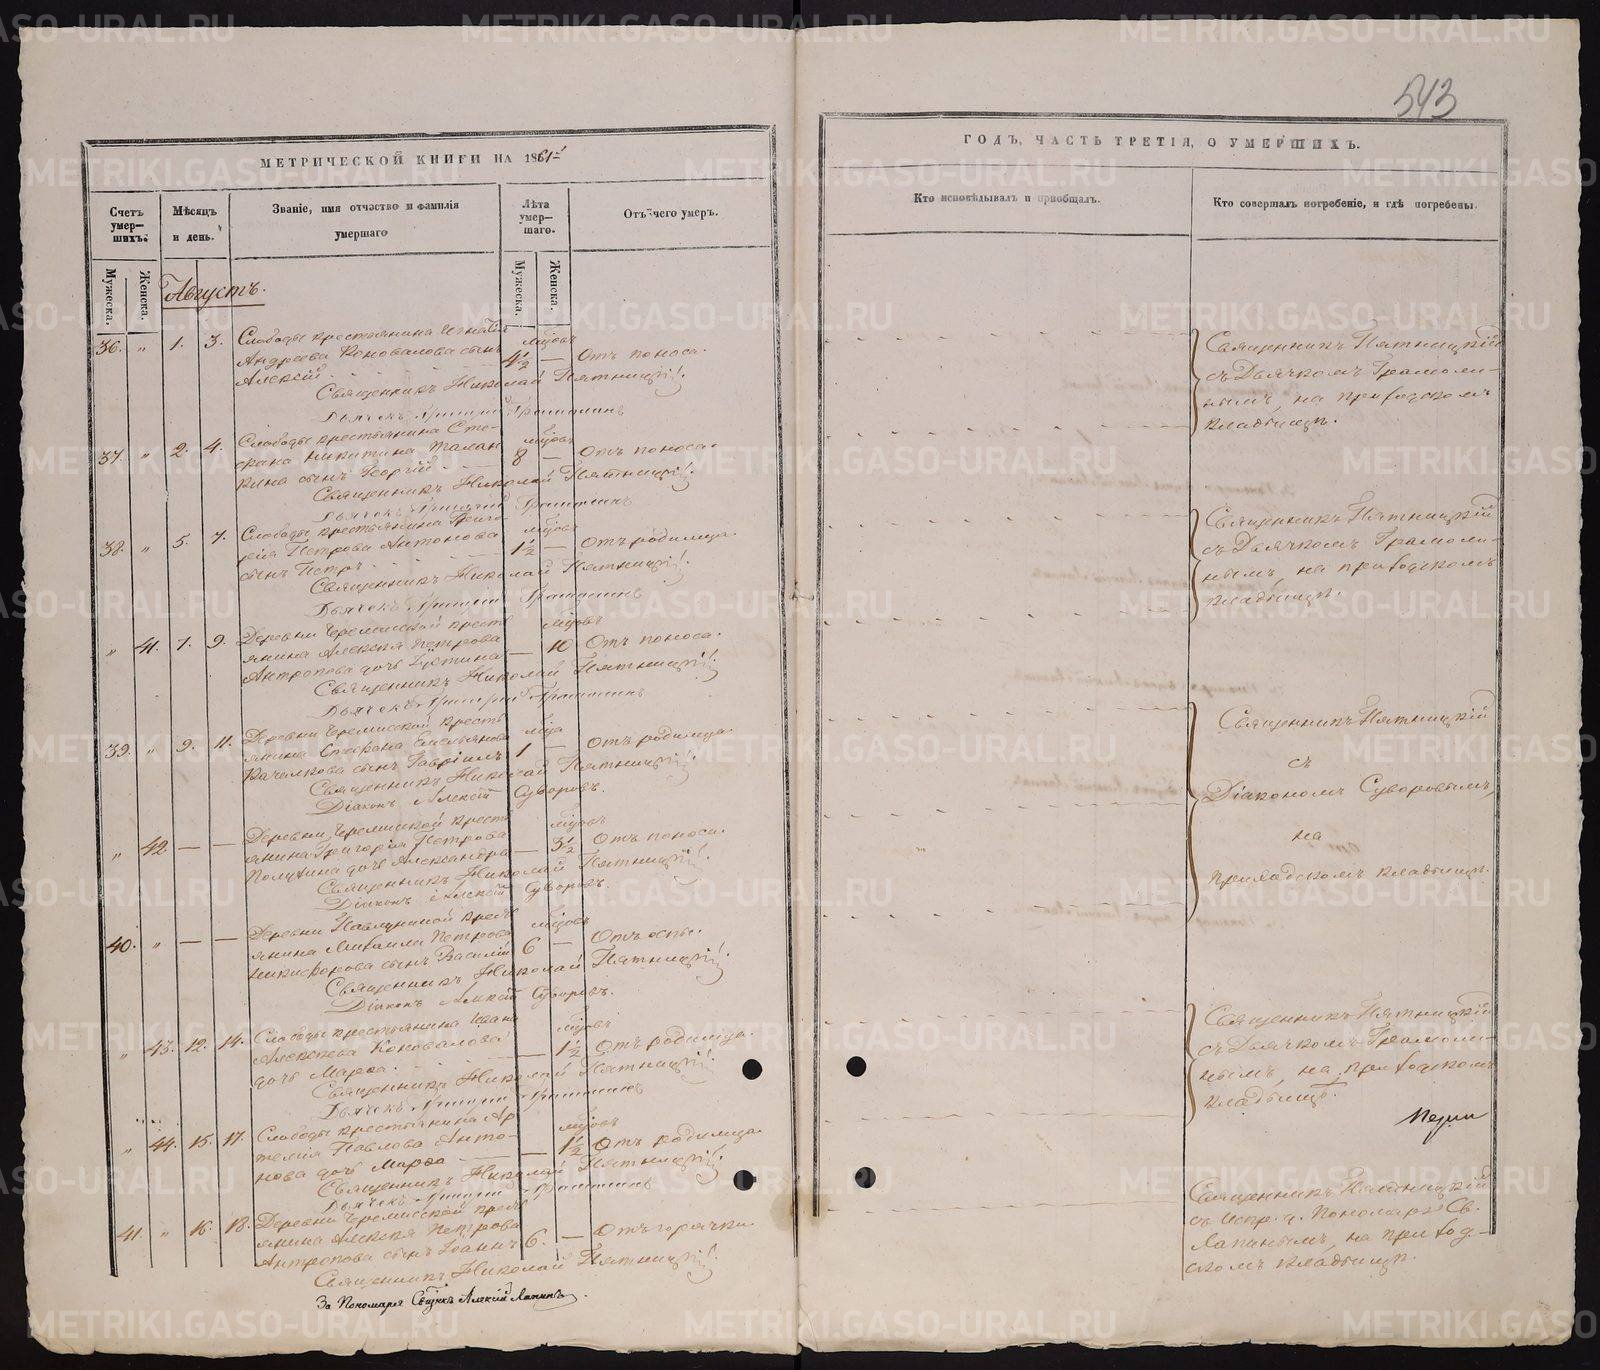 543
МЕТРИЧЕСКОЙ КНИГИ НА 1861й
Счетъ умер—шихъ.
Мѣсяцъ и день.
Званіе, имя отчество и фамилія умершаго
Лѣта умер—шаго.
Отъ чего умеръ.
Мужеска.
Женска.
Мужеска.
Женска.
Августъ.
36. „ 1. 3. Слободы крестьянина Игнатія мѣсовъ
Андреева Коновалова сынъ 4½ — Отъ поноса.
Алексій
Священникъ Николай Пятницкій.
Дьячекъ Григорій
37. „ 2. 4. Слободы крестьянина Сте- мѣсовъ
фана Никитина Талан 8 — Отъ поноса.
кина сынъ Георгій
Священникъ Николай Пятницкій.
Дьячекъ Григорій
38. „ 5. 7. Слободы крестьянина Григо- мѣсовъ
рія Петрова Антонова 1½ — Отъ родимца.
сынъ Петръ
Священникъ Николай Пятницкій.
Дьячекъ Григорій
„ 41. 7. 9. Деревни Черемисской кресть мѣсовъ
янина Алексѣя Петрова — 10 Отъ поноса.
Антропова дочь Іустина
Священникъ Николай Пятницкій.
Дьячекъ Григорій
39. „ 9. 11. Деревни Черемисской кресть мѣца
янина Стефана Емельянова 1 — Отъ родимца.
Качалкова сынъ Гавріилъ
Священникъ Николай Пятницкій.
Діаконъ Алексій Суворовъ.
„ 42. — — Деревни Черемисской кресть мѣсовъ
янина Григорія Петрова — 3½ Отъ поноса.
Полухина дочь Александра
Священникъ Николай Пятницкій.
Діаконъ Алексій Суворовъ.
40. „ — — Деревни крест мѣсовъ
янина Михаила Петрова 6 — Отъ оспы.
Никифорова сынъ Василій
Священникъ Николай Пятницкій.
Діаконъ Алексій Суворовъ.
„ 43. 12. 14. Слободы крестьянина Ивана мѣсовъ
Алексѣева Коновалова — 1½ Отъ родимца.
дочь Марѳа.
Священникъ Николай Пятницкій.
Дьячекъ Григорій
„ 44. 15. 17. Слободы крестьянина Ар мѣсовъ
темія Павлова Анто- — 1½ Отъ родимца.
нова дочь Марѳа
Священникъ Николай Пятницкій.
Дьячекъ Григорій
41. „ 16. 18. Деревни Черемисской крест
янина Алексѣя Петрова
Антропова сынъ Іоаннъ 6. — Отъ горячки.
Священникъ Николай Пятницкій.
За Пономаря Алексій Лапинъ.
ГОДЪ, ЧАСТЬ ТРЕТІЯ, О УМЕРШИХЪ.
Кто исповѣдывалъ и пріобщалъ.
Кто совершалъ погребеніе, и гдѣ погребены.
Священникъ Пятницкій
съ Дьячкомъ
на приходскомъ
кладбищѣ.
Священникъ Пятницкій
съ Дьячкомъ
на приходскомъ
кладбищѣ.
Священникъ Пятницкій
съ
Діакономъ Суворовымъ,
на
приходскомъ кладбищѣ.
Священникъ Пятницкій
съ Дьячкомъ
на приходскомъ
кладбищѣ.
Священникъ Пятницкій
съ Испр. д. Пономаря Св.
Лапинымъ, на приход-
скомъ кладбищѣ.
METRIKI.GASO-URAL.RU